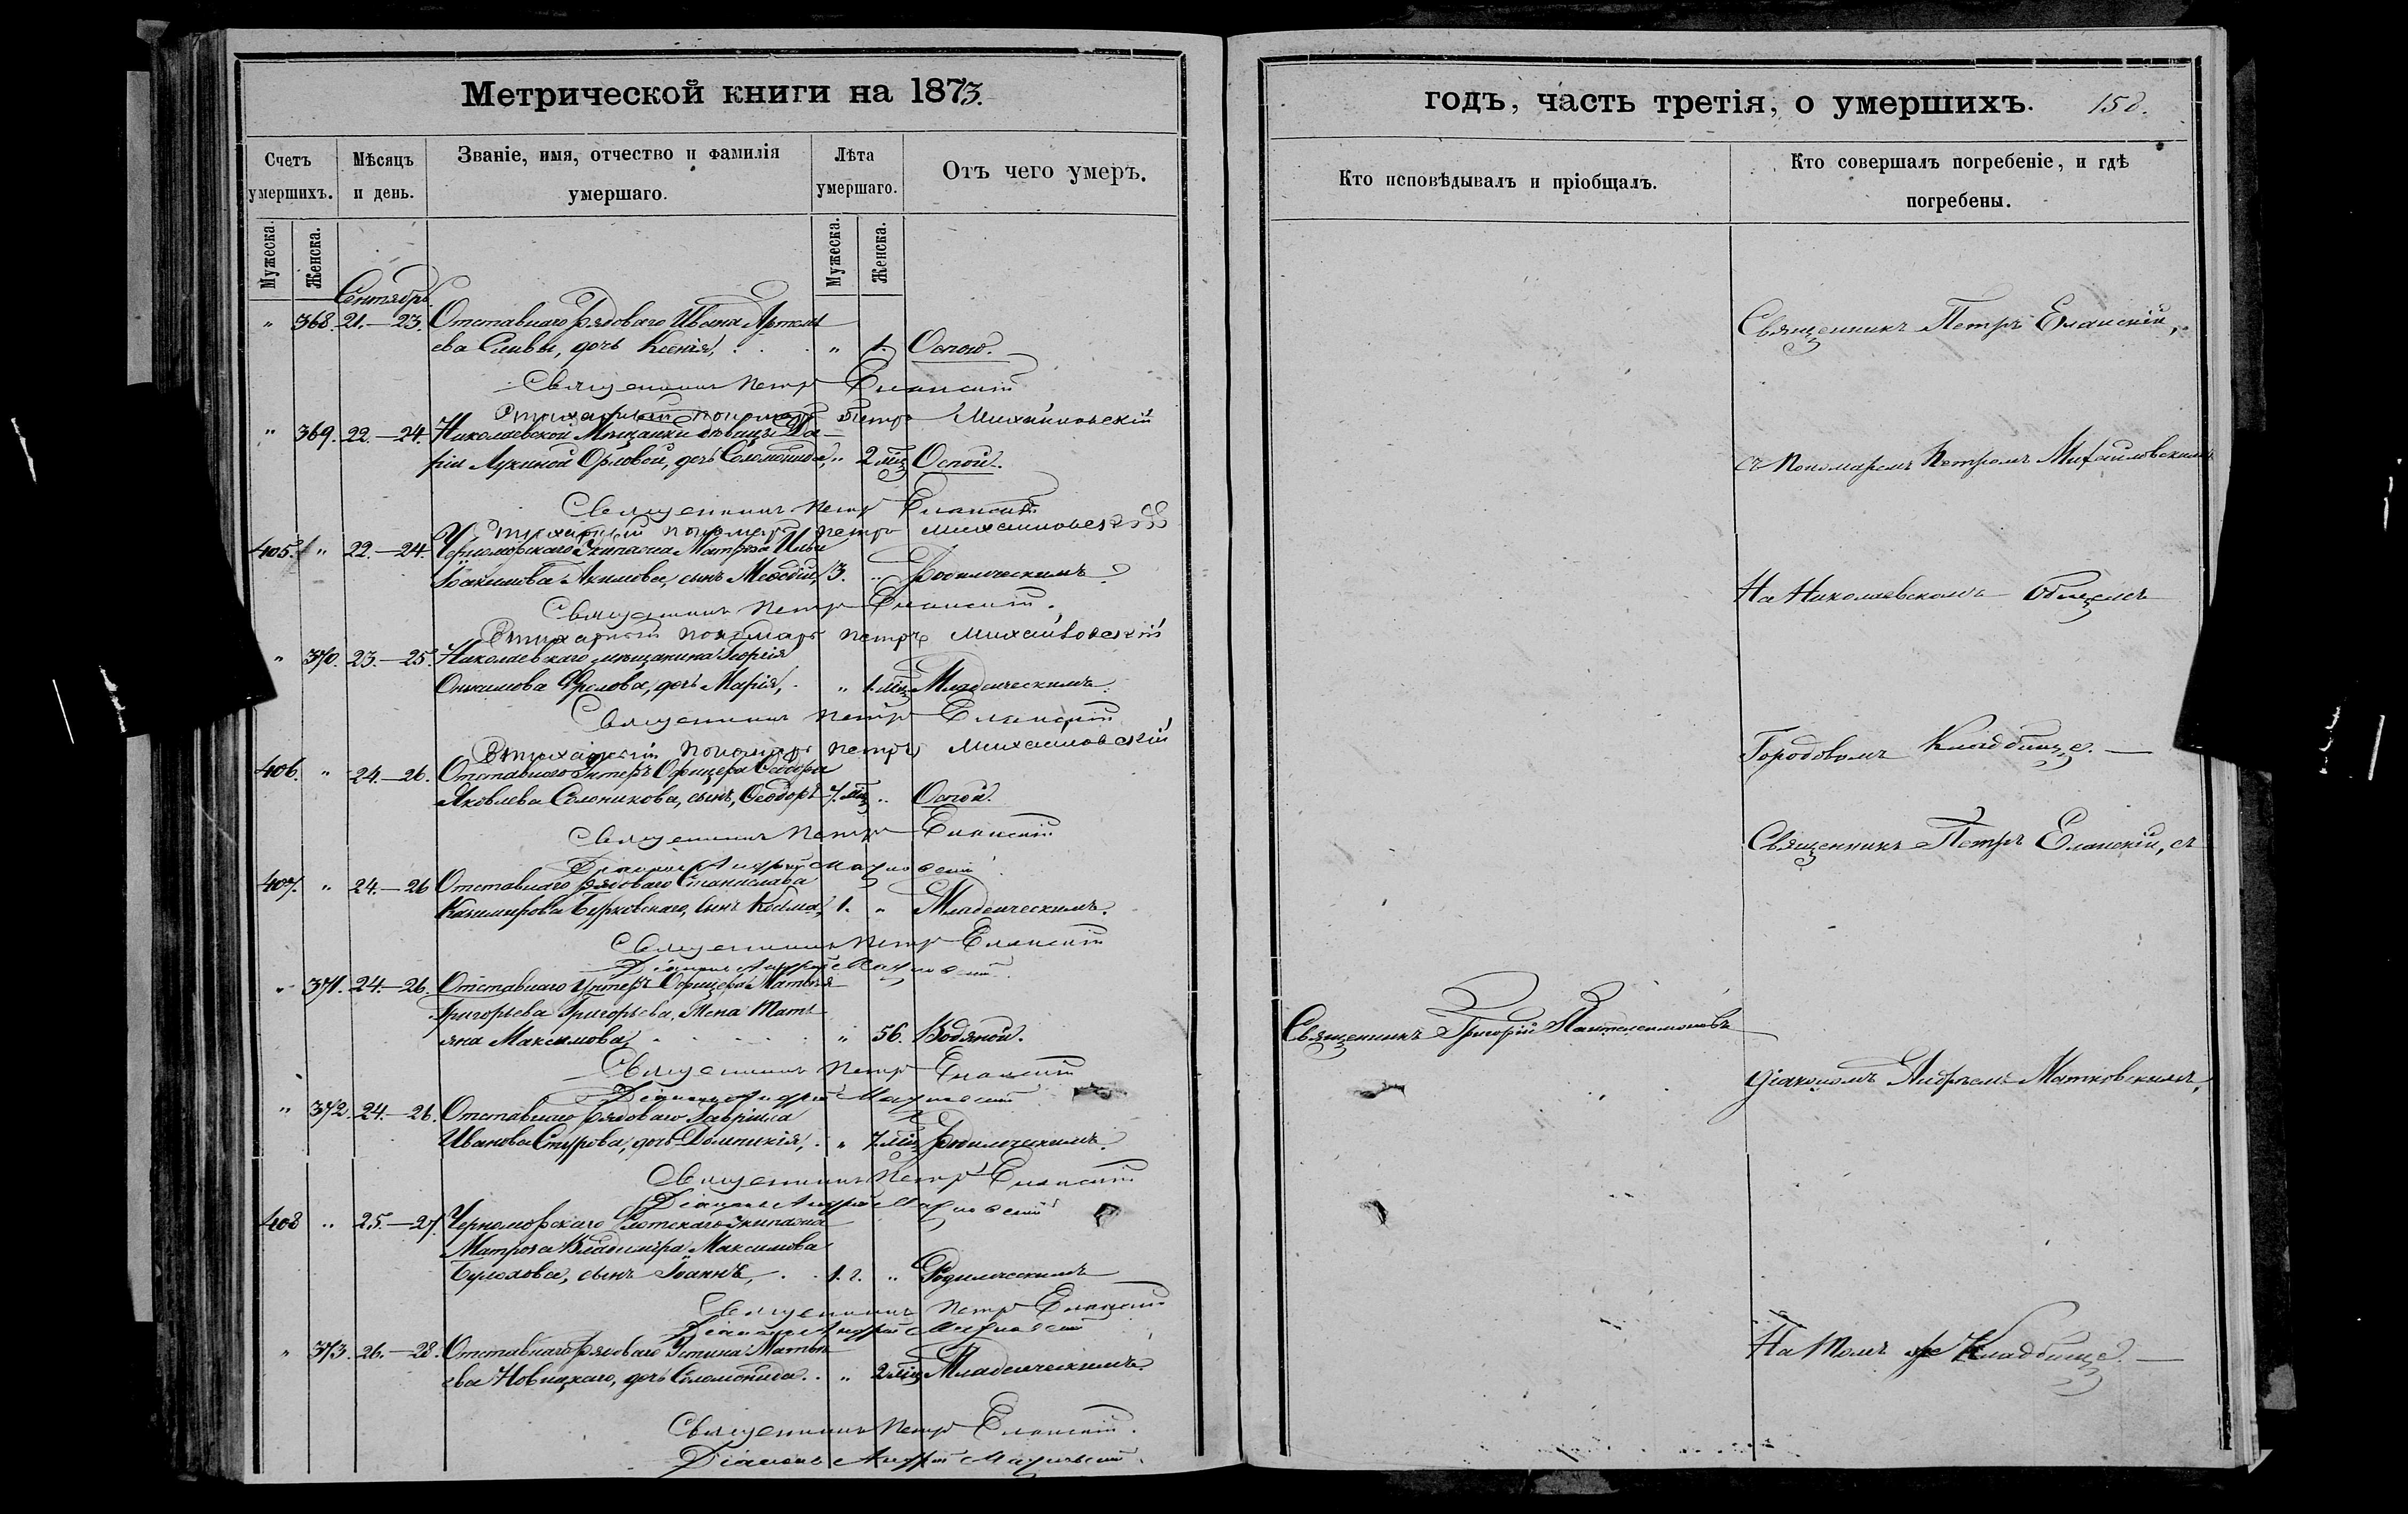 Метрической книги на 1873.
Счетъ умершихъ.
Мѣсяцъ и день.
Званіе, имя, отчество и фамилія умершаго.
Лѣта умершаго.
Отъ чего умеръ.
Мужеска.
Женска.
Мужеска.
Женска.
Сентябрь
" 368. 21.—23. Отставнаго рядоваго Ивана Артемь
ева Сливы, дочь Ксенія, " 1. Оспою.
Священникъ Петръ Еланскій
Стихарный пономарь Петръ Михайловскій
" 369. 22.—24. Николаевской Мѣщанки дѣвицы Да-
ріи Лукиной Орловой, дочь Соломонида, " 2 мѣц Оспой.
Священникъ Петръ Еланскій
Стихарный пономарь Петръ Михайловскій
405. " 22.—24. Черноморскаго Экипажа Матроза Ильи
Іоакимова Акимова, сынъ Меѳодій, 3. " Родимческимъ
Священникъ Петръ Еланскій.
Стихарный пономарь Петръ Михайловскій
" 370. 23.—25. Николаевскаго мѣщанина Георгія
Фролова, дочь Марія, " 1 мѣц Младенческимъ.
Священникъ Петръ Еланскій
Стихарный пономарь Петръ Михайловскій
406. " 24.—26. Отставнаго Унтеръ Офицера Ѳеодора
Яковлева Солоникова, сынъ, Ѳеодоръ 7. мѣц " Оспой.
Священникъ Петръ Еланскій
Діаконъ Андрей Матковскій
407. " 24.—26 Отставнаго рядоваго Станислава
Казимирова Бурковскаго, сынъ Косьма, 1. " Младенческимъ.
Священникъ Петръ Еланскій
Діаконъ Андрей Матковскій
" 371. 24.—26. Отставнаго Унтеръ Офицера Матвѣя
Григорьева Григорьева, жена Тать
яна Максимова, " 56. Водяной.
Священникъ Петръ Еланскій
Діаконъ Андрей Матковскій
" 372. 24.—26. Отставнаго рядоваго Гавріила
Иванова Спурова, дочь Домникія, " 7 мѣц Родимческимъ.
Священникъ Петръ Еланскій
Діаконъ Андрей Матковскій
408 " 25.—27. Черноморскаго Флотскаго Экипажа
Матроза Владиміра Максимова
сынъ Іоаннъ, 1. г. " Родимческимъ
Священникъ Петръ Еланскій
Діаконъ Андрей Матковскій
" 373. 26.—28. Отставнаго рядоваго Устина Матвѣ
ева Новицкаго, дочь Соломонида. " 2 мѣц Младенческимъ.
Священникъ Петръ Еланскій.
Діаконъ Андрей Матковскій
годъ, часть третія, о умершихъ. 158.
Кто исповѣдывалъ и пріобщалъ.
Кто совершалъ погребеніе, и гдѣ погребены.
Священникъ Петръ Еланскій,
съ пономаремъ Петромъ Михайловскимъ
На Николаевскомъ Общемъ
Городовомъ Кладбищѣ.—
Священникъ Петръ Еланскій, съ
Священникъ Григорій Пантелеимоновъ
діакономъ Андреемъ Матковскимъ,
На томъ же Кладбищѣ.—